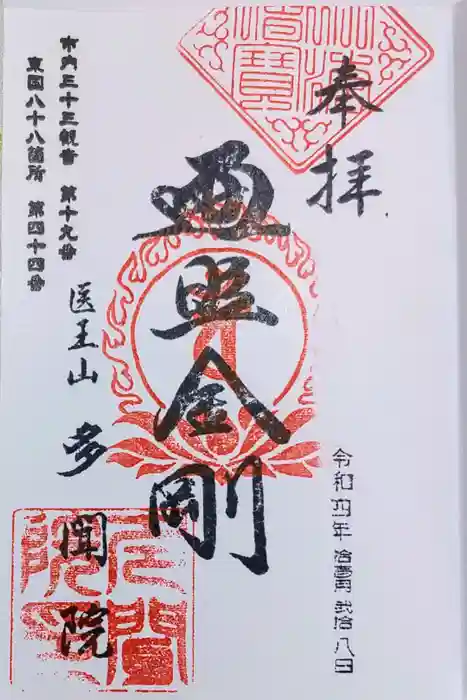 奉拝
令和四年 拾壹月 弐拾八日
遍照金剛
医王山 多聞院
市内三十三観音 第十九番
東国八十八箇所 第四十四番
佛法僧寶
多聞院印